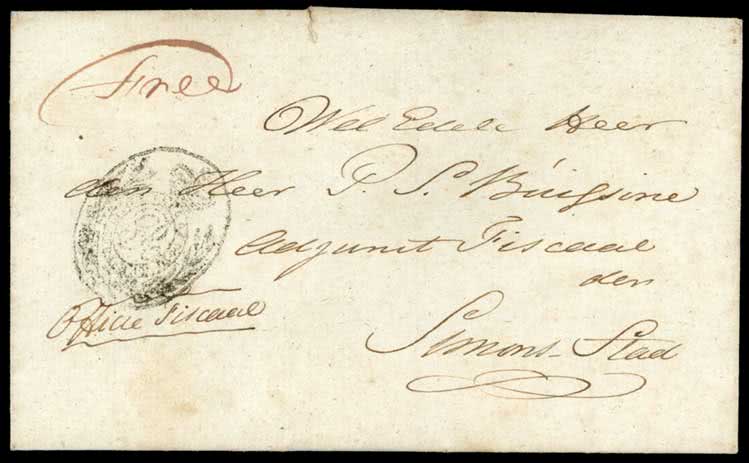 Free
Wel Edele Heer
den Heer P. S. Buissine
Adjunct Fiscaal
den
Simons-Stad
Office Fiscaal